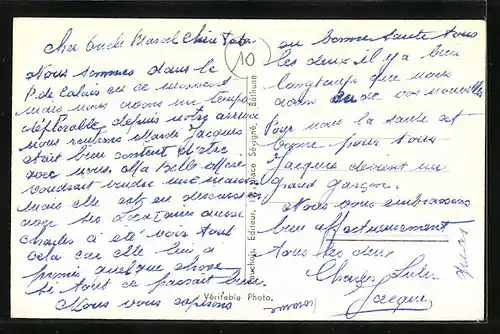 Cher Oncle Marcel Chère Tata
Nous sommes dans le
P. de Calais en ce moment
mais nous avons un temps
déplorable depuis notre arrivée
nous rentrons Mardi Jacques
était bien content d'être
avec nous. Ma Belle Mère
voudrait vendre une maison
mais elle est en
avec ses locataires aussi
Charles a été voir tout
cela car elle lui a
promis quelque chose
si tout ce passait bien.
Nous vous espérons
10
en bonne santé tous
les deux il y a bien
longtemps que nous
avons eu de vos nouvelles
Pour nous la santé est
bonne pour tous
Jacques devient un
grand garçon.
Nous vous embrassons
bien affectueusement
tous les deux
Charles
Jacques
Editeur, Place Sévigné, Béthune
Véritable Photo.